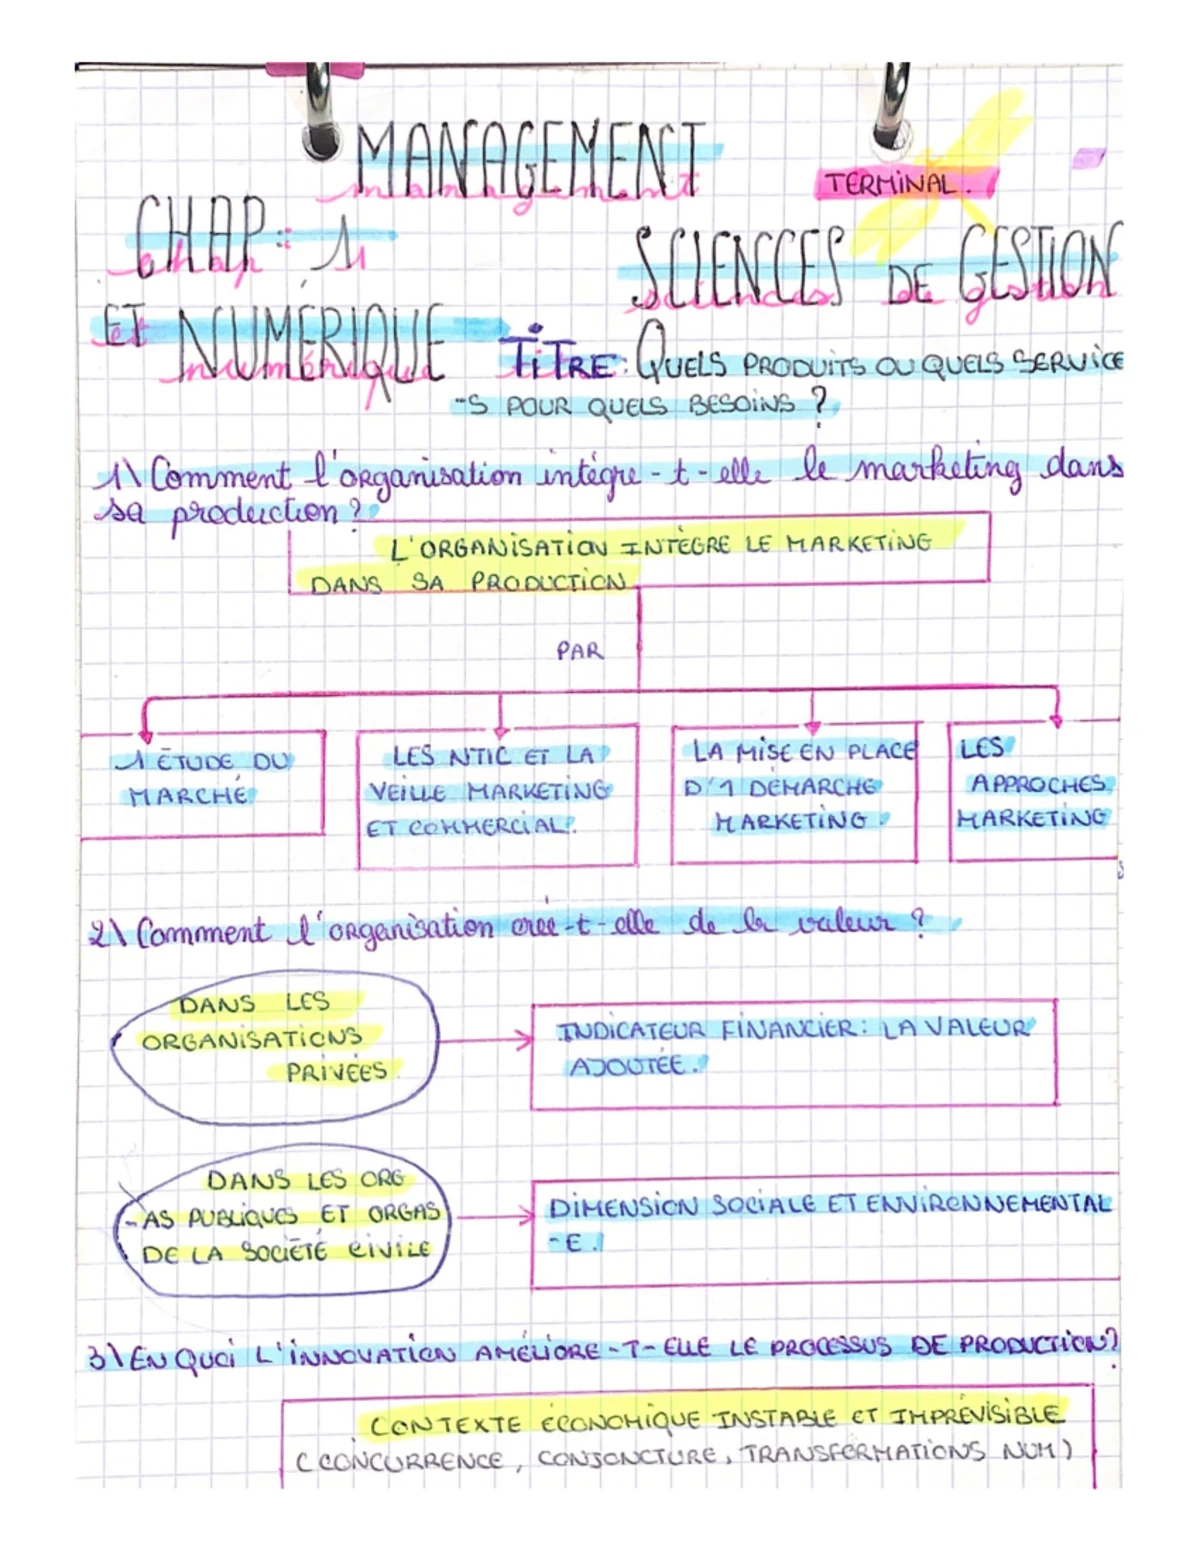 MANAGEMENT
TERMINAL.
CHAP: 1
SCIENCES DE GESTION
ET NUMÉRIQUE TITRE: QUELS PRODUITS OU QUELS SERVICE
-S POUR QUELS BESOINS ?
1\ Comment l'organisation intègre-t-elle le marketing dans
sa production ?
L'ORGANISATION INTÈGRE LE MARKETING
DANS SA PRODUCTION
PAR
1 ÉTUDE DU
MARCHÉ
LES NTIC ET LA
VEILLE MARKETING
ET COMMERCIAL.
LA MISE EN PLACE
D'1 DÉMARCHE
MARKETING.
LES
APPROCHES
MARKETING
2\ Comment l'organisation crée-t-elle de la valeur ?
DANS LES
ORGANISATIONS
PRIVÉES
INDICATEUR FINANCIER: LA VALEUR
AJOUTÉE.
DANS LES ORG
-AS PUBLIQUES ET ORGAS
DE LA SOCIÉTÉ CIVILE
DIMENSION SOCIALE ET ENVIRONNEMENTAL
-E.
3\ EN QUOI L'INNOVATION AMÉLIORE-T-ELLE LE PROCESSUS DE PRODUCTION?
CONTEXTE ÉCONOMIQUE INSTABLE ET IMPRÉVISIBLE
(CONCURRENCE, CONJONCTURE, TRANSFORMATIONS NUM)